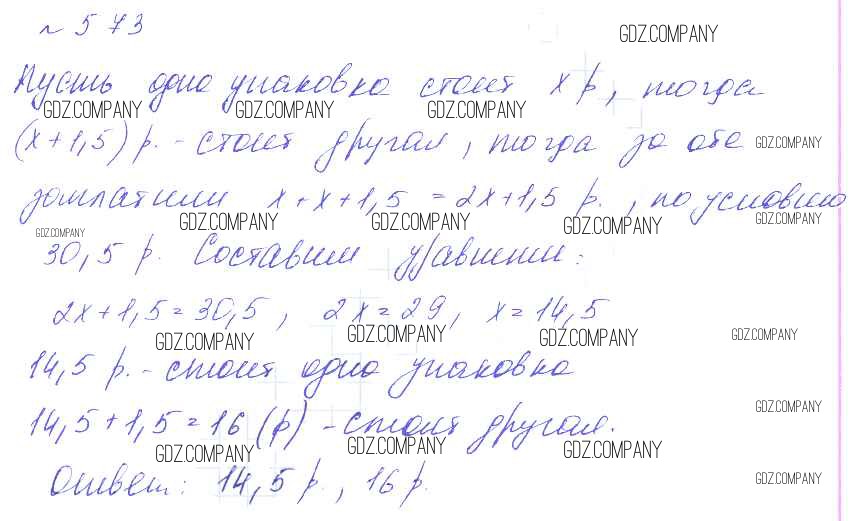 № 573
GDZ.COMPANY
Пусть одна упаковка стоит х р, тогда
GDZ.COMPANY GDZ.COMPANY GDZ.COMPANY
(х+1,5) р. - стоит другая, тогда за обе
GDZ.COMPANY
заплатили х+х+1,5 = 2х+1,5 р., по условию
GDZ.COMPANY GDZ.COMPANY GDZ.COMPANY GDZ.COMPANY
GDZ.COMPANY
30,5 р. Составим уравнение:
2х+1,5=30,5, 2х=29, х=14,5
GDZ.COMPANY GDZ.COMPANY GDZ.COMPANY GDZ.COMPANY
14,5 р. - стоит одна упаковка
GDZ.COMPANY
14,5+1,5=16 (р) - стоит другая.
GDZ.COMPANY GDZ.COMPANY GDZ.COMPANY
Ответ: 14,5 р., 16 р.
GDZ.COMPANY